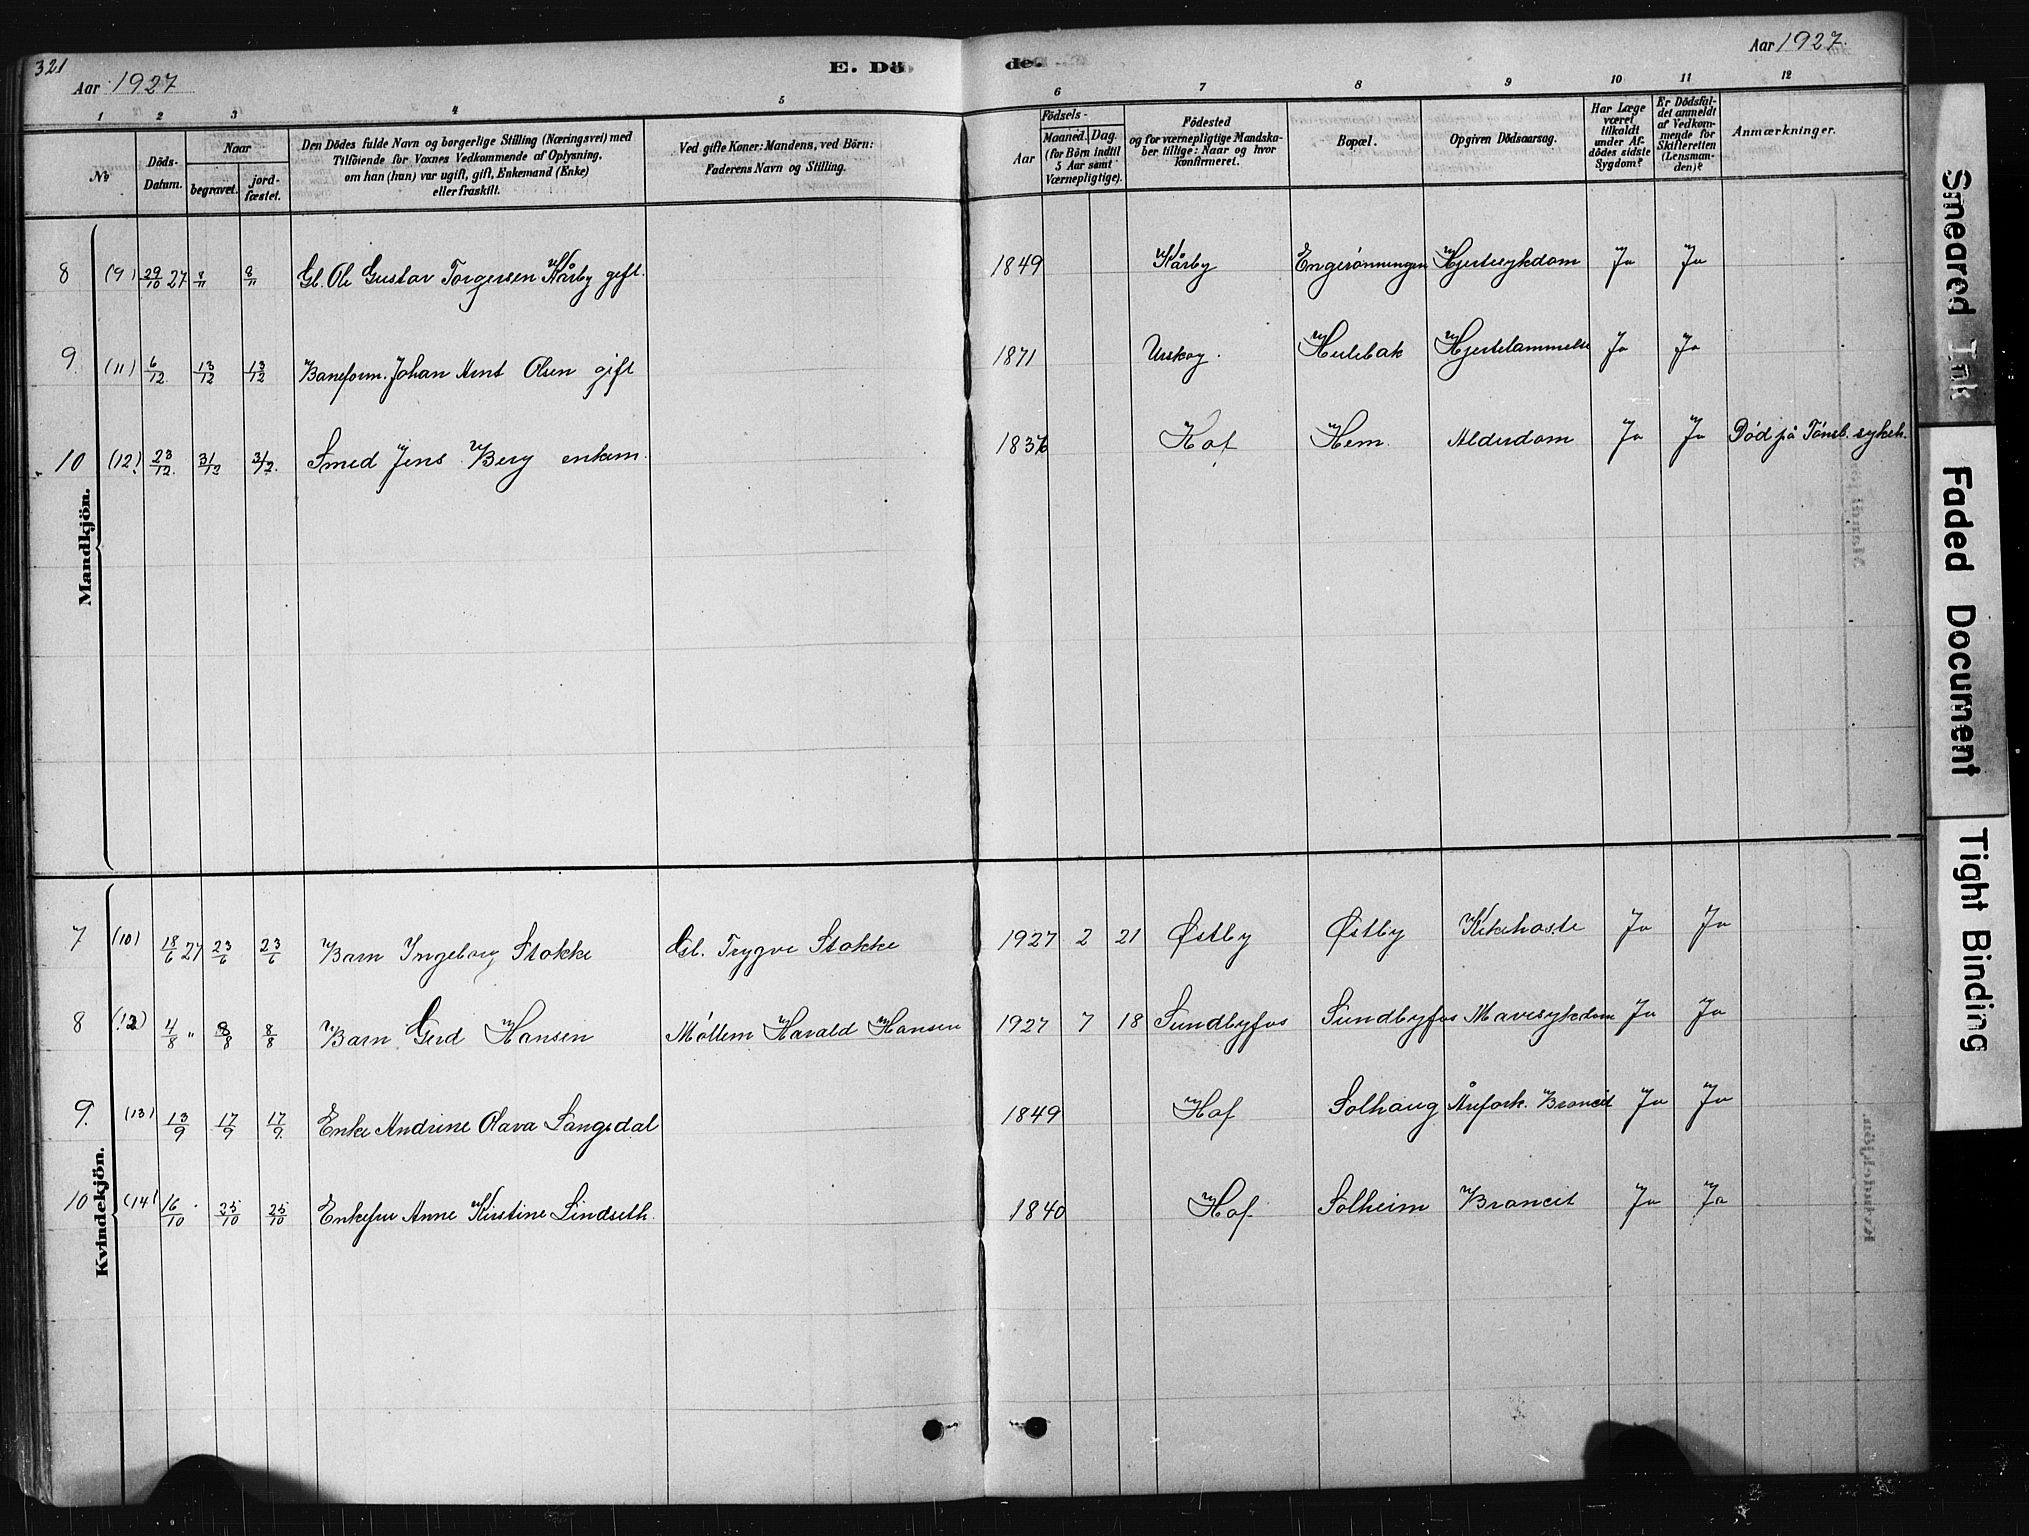 321
Aar 1927
E. Dö
de.
Aar 1927.
1 2 3 4 5 6 7 8 9 10 11 12
No
Döds-
Datum.
Naar
begravet.
jord-
fæstet.
Den Dödes fulde Navn og borgerlige Stilling (Næringsvei) med
Tilföiende for Voxnes Vedkommende af Oplysning,
om han (hun) var ugift, gift, Enkemand (Enke)
eller fraskilt.
Ved gifte Koner: Mandens, ved Börn:
Faderens Navn og Stilling.
Födsels-
Aar
Maaned. Dag.
(for Börn indtil
5 Aar samt
Værnepligtige).
Födested
og for værnepligtige Mandska-
ber tillige: Naar og hvor
konfirmeret.
Bopæl.
Opgiven Dödsaarsag.
Har Læge
været
tilkaldt
under Af-
dödes sidste
Sygdom?
Er Dödsfal-
det anmeldt
af Vedkom-
mende for
Skifteretten
(Lensman-
den)?
Anmærkninger.
Mandkjön.
8 (9) 29/10 27 8/11 8/11 Gl. Ole Gustav Torgersen Kårby gift. 1849 Kårby Engerönningen Hjertesykdom Ja Ja
9. (11) 6/12 13/12 13/12 Baneform. Johan Arnt Olsen gift 1871 Urskog. Hulebak Hjertelammelse Ja Ja
10 (12) 23/12. 31/12 31/12. Smed Jens Berg enkem. 1836 Hof Hem. Alderdom Ja Ja Död på Tönsb. sykeh.
Kvindekjön.
7 (10) 18/6 27 23/6 23/6 Barn Ingeborg Stokke Gb. Trygve Stokke 1927 2 21 Østby Østby Kikehoste Ja Ja
8 (12) 4/8 " 8/8 8/8 Barn Gerd Hansen Møllem Harald Hansen 1927 7 18 Sundbyfos Sundbyfos Mavesykdom Ja Ja
9. (13) 13/9 17/9 17/9. Enke Andrine Olava Langsdal 1849 Hof Solhaug Årefork. Broncit Ja Ja
10 (14) 16/10 25/10 25/10 Enkefru Anne Kirstine Lindseth. 1840 Hof Solheim Broncit Ja Ja
Smeared Ink
Faded Document
Tight Binding